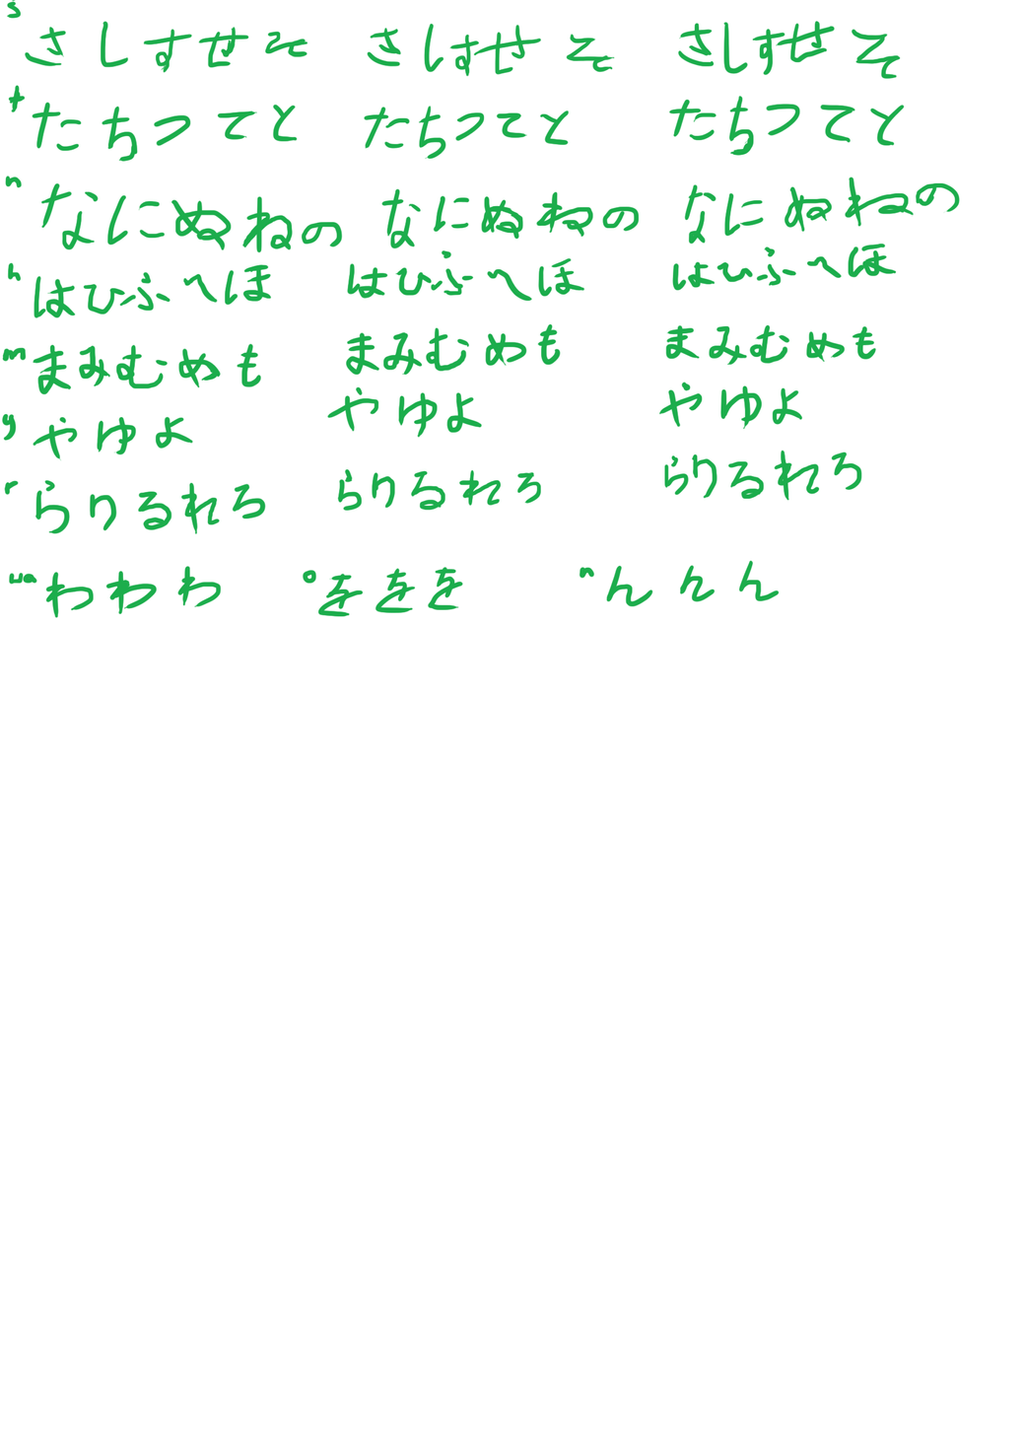 s さしすせそ さしすせそ さしすせそ
t たちつてと たちつてと たちつてと
n なにぬねの なにぬねの なにぬねの
h はひふへほ はひふへほ はひふへほ
m まみむめも まみむめも まみむめも
y やゆよ やゆよ やゆよ
r らりるれろ らりるれろ らりるれろ
wa わわわ o ををを n んんん